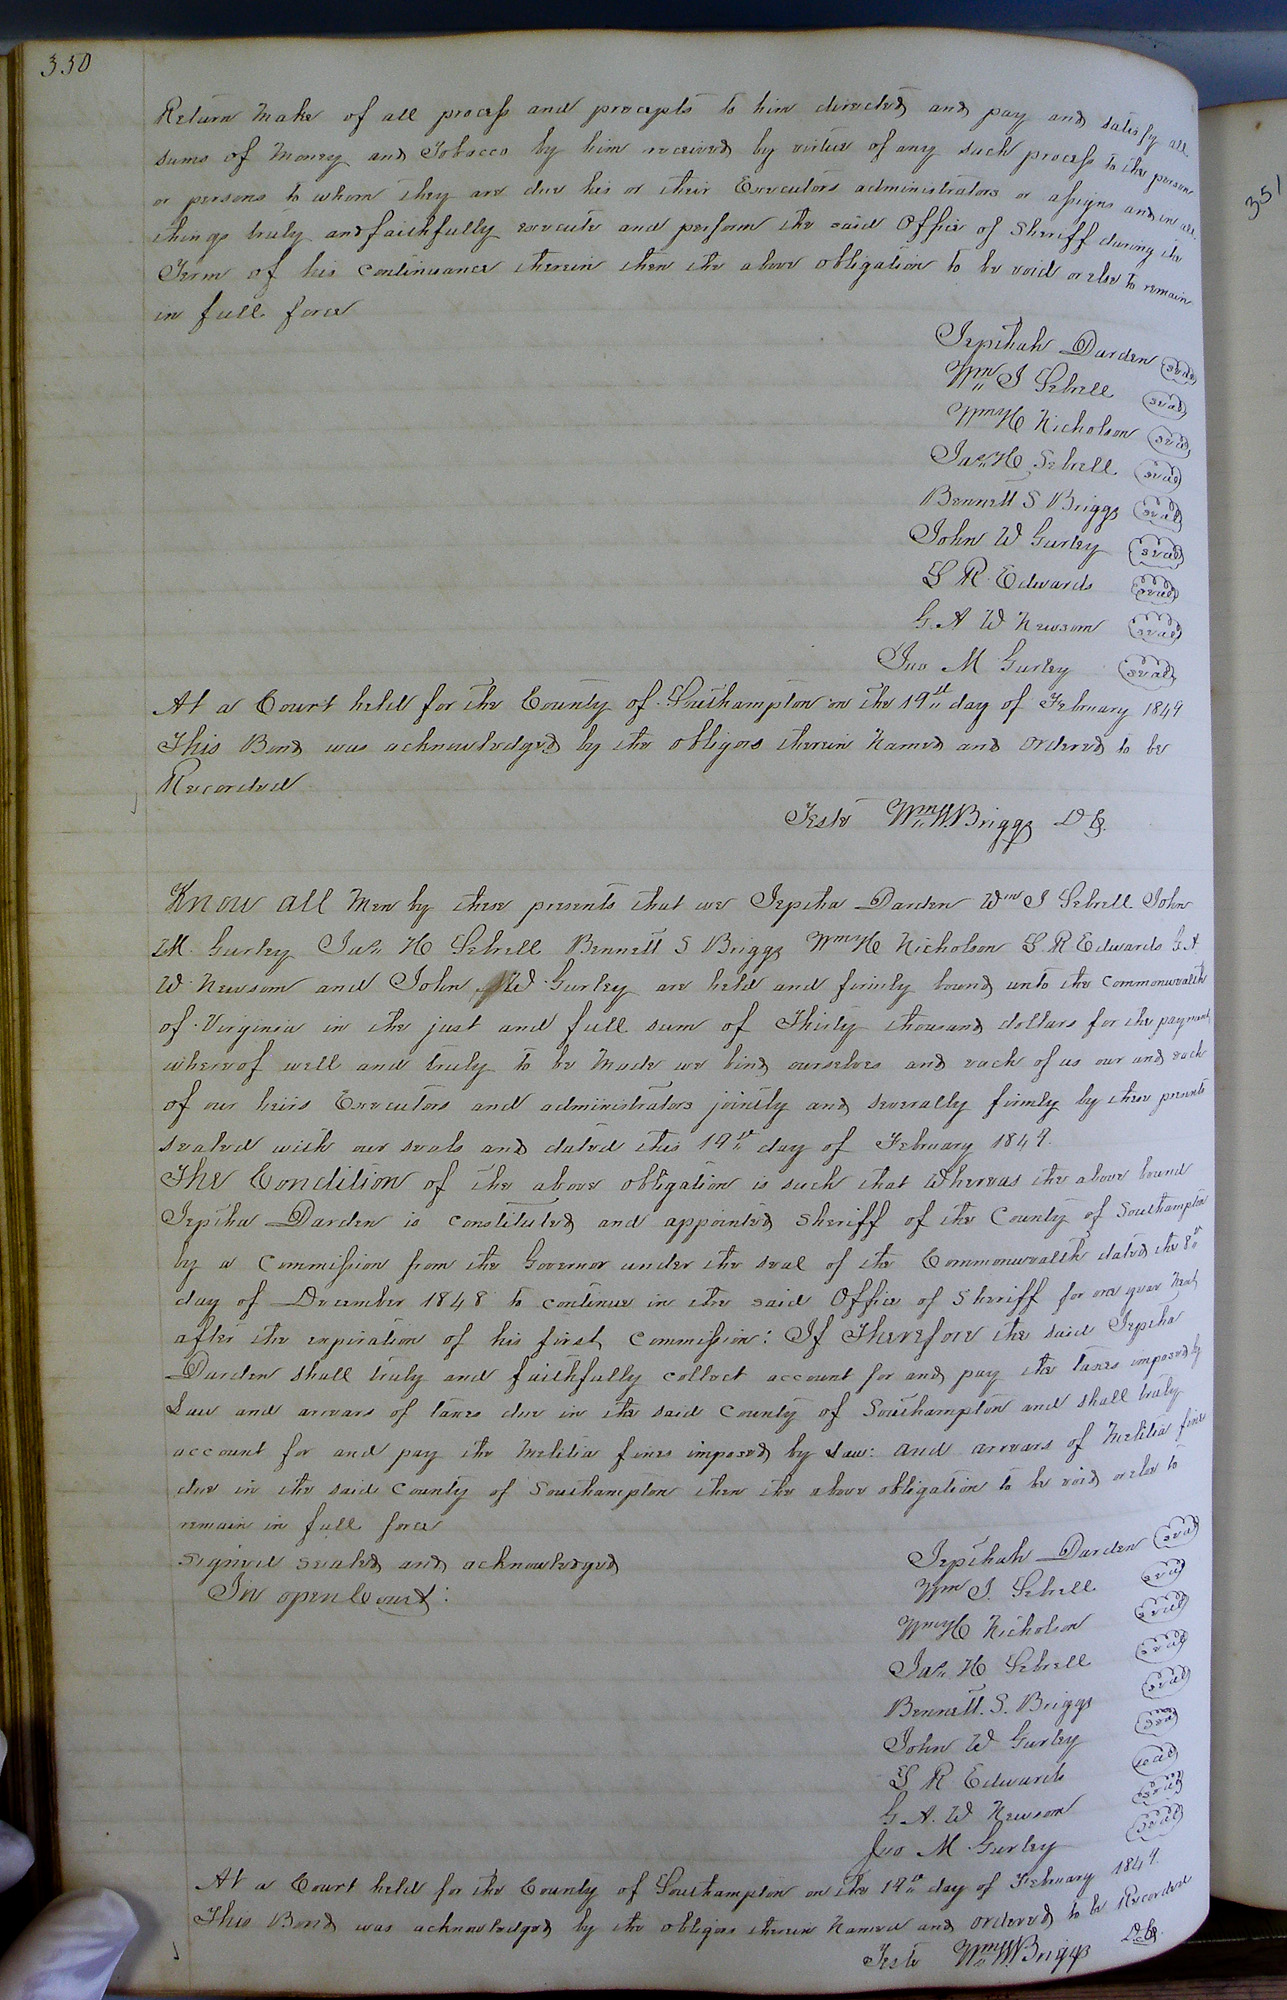 350
Return make of all process and precepts to him directed and pay and satisfy all
sums of Money and Tobacco by him received by virtue of any such process to the person
or persons to whom they are due his or their Executors administrators or assigns and in all
things truly and faithfully execute and perform the said Office of Sheriff during the
Term of his continuance therein then the above obligation to be void or else to remain
in full force
Jepthah Darden seal
Wm J Sebrell seal
Wm H Nicholson seal
Jas. H Sebrell seal
Bennett S Briggs seal
John W Gurley seal
L R Edwards seal
G. A W Newsom seal
Jno M Gurley seal
At a Court held for the County of Southampton on the 19th day of February 1849
This Bond was acknowledged by the obligors therein Named and ordered to be
Recorded
Teste Wm W. Briggs D C.
Know all Men by these presents that we Jeptha Darden Wm J Sebrell John
M. Gurley Jas. H Sebrell Bennett S Briggs Wm H Nicholson L R Edwards G. A
W Newsom and John W Gurley are held and firmly bound unto the Commonwealth
of Virginia in the just and full sum of Thirty thousand dollars for the payment
whereof well and truly to be made we bind ourselves and each of us our and each
of our heirs Executors and administrators jointly and severally firmly by these presents
sealed with our seals and dated this 19th day of February 1849.
The Condition of the above obligation is such that Whereas the above bound
Jeptha Darden is constituted and appointed Sheriff of the County of Southampton
by a Commission from the Governor under the seal of the Commonwealth dated the 8th
day of December 1848 to continue in the said Office of Sheriff for one year Next
after the expiration of his first Commission: If Therefore the said Jeptha
Darden shall truly and faithfully collect account for and pay the taxes imposed by
Law and arrears of taxes due in the said County of Southampton and shall truly
account for and pay the Melitia fines imposed by Law: and arrears of Melitia fines
due in the said County of Southampton then the above obligation to be void or else to
remain in full force
signed sealed and acknowledged
In open Court:
Jepthah Darden seal
Wm J. Sebrell seal
Wm H Nicholson seal
Jas. H Sebrell seal
Bennett. S. Briggs seal
John W Gurley seal
L R Edwards seal
G. A. W Newsom seal
Jno M Gurley seal
At a Court held for the County of Southampton on the 19th day of February 1849.
This Bond was acknowledged by the obligors therein Named and ordered to be Recorded
Teste Wm W. Briggs D. C.
351